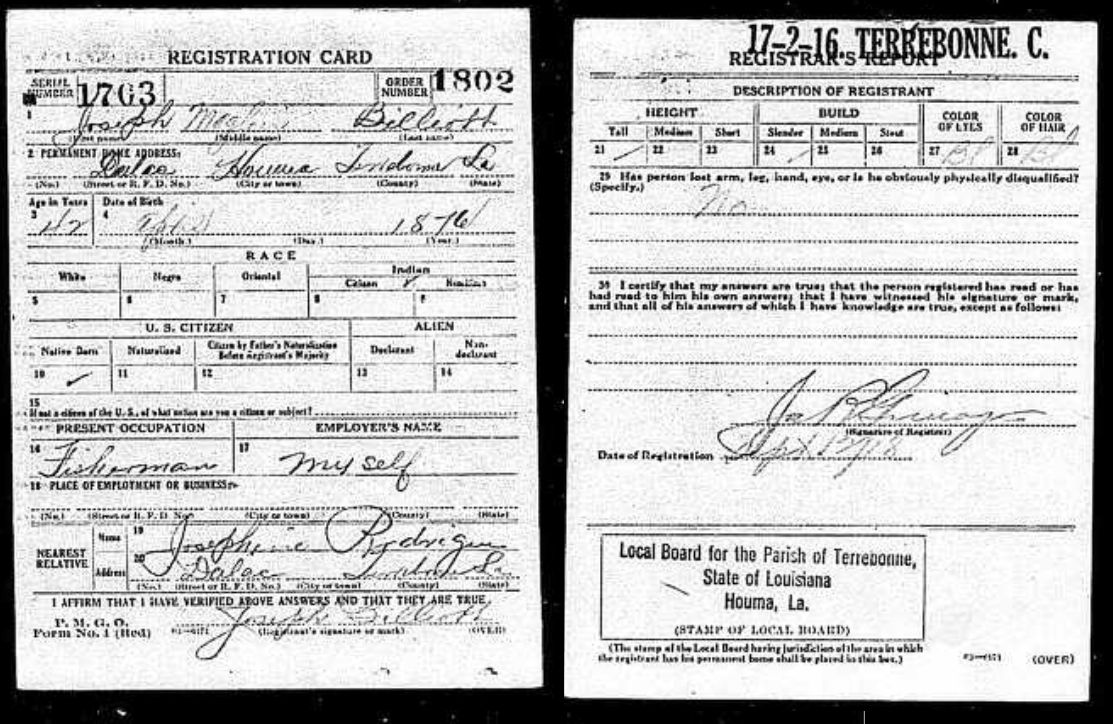 REGISTRATION CARD
SERIAL NUMBER 1703
ORDER NUMBER 1802
1 Joseph Billiott
(First name) (Middle name) (Last name)
2 PERMANENT HOME ADDRESS:
Dulac Houma La
(No.) (Street or R. F. D. No.) (City or town) (County) (State)
Age in Years Date of Birth
3 42 4 1876
(Month.) (Day.) (Year.)
RACE
White Negro Oriental Indian
Citizen Noncitizen
5 6 7 8 ✓ 9
U. S. CITIZEN ALIEN
Native Born Naturalized Citizen by Father's Naturalization Before Registrant's Majority Declarant Non-declarant
10 ✓ 11 12 13 14
15
If not a citizen of the U. S., of what nation are you a citizen or subject?
PRESENT OCCUPATION EMPLOYER'S NAME
16 Fisherman 17 my self
18 PLACE OF EMPLOYMENT OR BUSINESS:
(No.) (Street or R. F. D. No.) (City or town) (County) (State)
NEAREST RELATIVE
Name 19 Josephine
Address 20 Dulac La
(No.) (Street or R. F. D. No.) (City or town) (County) (State)
I AFFIRM THAT I HAVE VERIFIED ABOVE ANSWERS AND THAT THEY ARE TRUE.
P. M. G. O.
Form No. 1 (Red)
Joseph Billiott
(Registrant's signature or mark) (OVER)
17-2-16. TERREBONNE. C.
REGISTRAR'S REPORT
DESCRIPTION OF REGISTRANT
HEIGHT BUILD COLOR OF EYES COLOR OF HAIR
Tall Medium Short Slender Medium Stout
21 ✓ 22 23 24 ✓ 25 26 27 Bl 28 Bl
29 Has person lost arm, leg, hand, eye, or is he obviously physically disqualified?
(Specify.) No
30 I certify that my answers are true; that the person registered has read or has
had read to him his own answers; that I have witnessed his signature or mark,
and that all of his answers of which I have knowledge are true, except as follows:
(Signature of Registrar)
Date of Registration Sept 1918
Local Board for the Parish of Terrebonne,
State of Louisiana
Houma, La.
(STAMP OF LOCAL BOARD)
(The stamp of the Local Board having jurisdiction of the area in which
the registrant has his permanent home shall be placed in this box.)
(OVER)